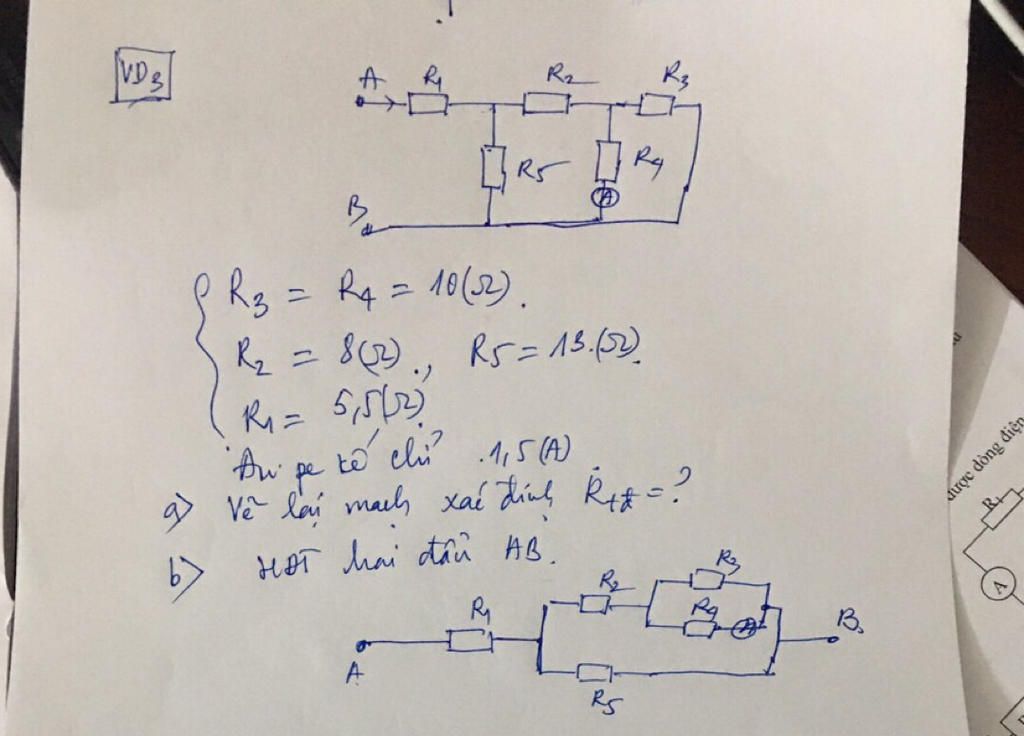 VD3
A R1 R2 R3
R5 R4
A
B
R3 = R4 = 10(Ω).
R2 = 8(Ω)., R5 = 13.(Ω).
R1 = 5,5(Ω)
Am pe kế chỉ .1,5(A)
a) Vẽ lại mạch xác định Rtđ = ?
b) HĐT hai đầu AB.
R3
R2
R4
R1 A B
A
R5
được dòng điện
R1
A